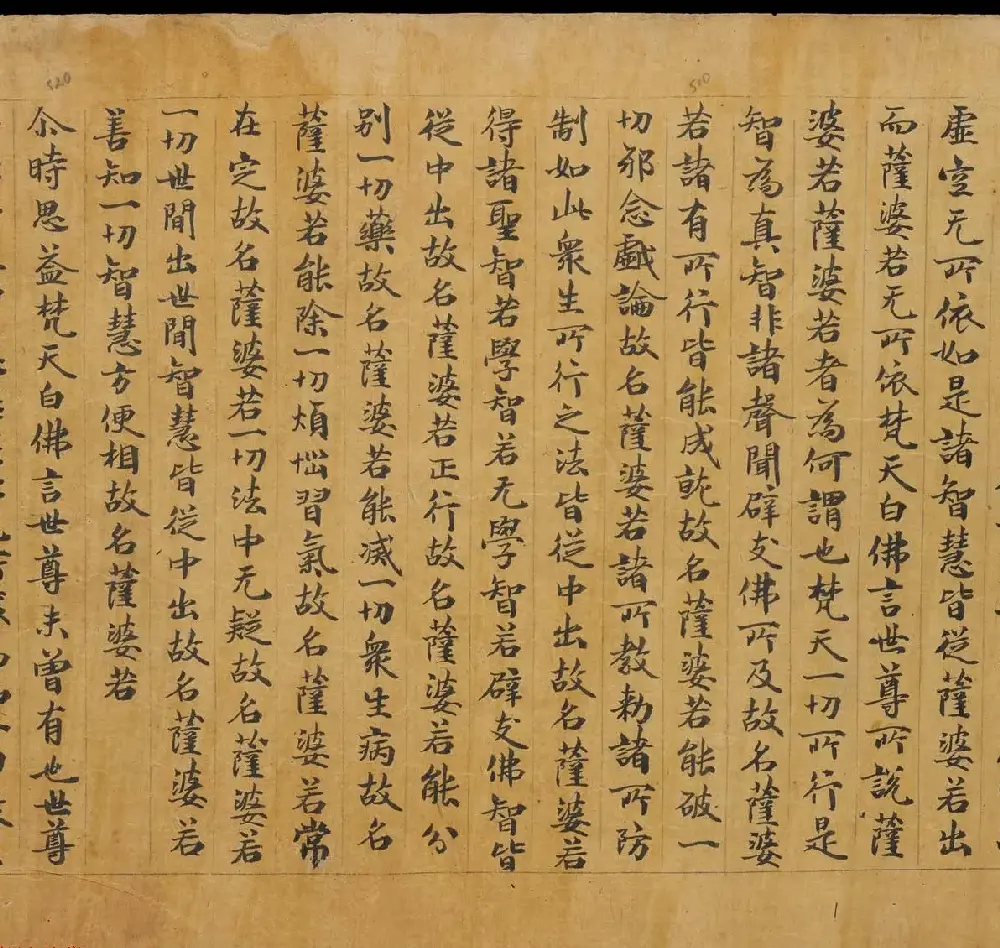 虛空无所依如是諸智慧皆從薩婆若出
而薩婆若无所依梵天白佛言世尊所說薩
婆若薩婆若者為何謂也梵天一切所行是
智為真智非諸聲聞辟支佛所及故名薩婆
若諸有所行皆能成就故名薩婆若能破一
切邪念戲論故名薩婆若諸所教勑諸所防
制如此眾生所行之法皆從中出故名薩婆若
得諸聖智若學智若无學智若辟支佛智皆
從中出故名薩婆若正行故名薩婆若能分
別一切藥故名薩婆若能滅一切眾生病故名
薩婆若能除一切煩惱習氣故名薩婆若常
在定故名薩婆若一切法中无疑故名薩婆若
一切世間出世間智慧皆從中出故名薩婆若
善知一切智慧方便相故名薩婆若
尒時思益梵天白佛言世尊未曾有也世尊
510
520